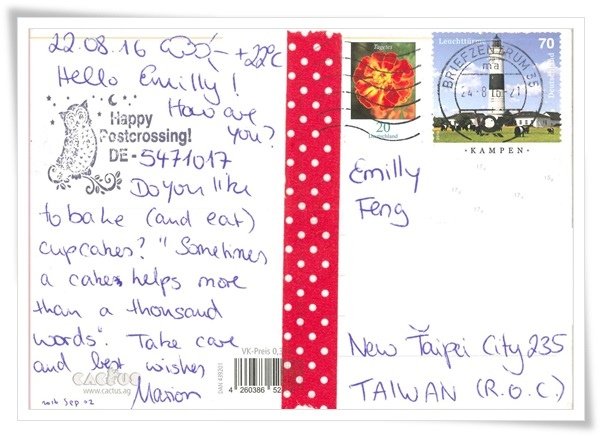 22.08.16 +22°C
Hello Emilly!
How are
you?
Happy
Postcrossing!
DE-5471017
Do you like
to bake (and eat)
cupcakes? "Sometimes
a cake helps more
than a thousand
words". Take care
and best wishes
Marion
2016 Sep. 02
CACTUS
www.cactus.ag
VK-Preis 0,
DAN 439201
4 260386 52
Tagetes
20
Deutschland
Leuchttürme
70
Deutschland
BRIEFZENTRUM 35
ma
24.8.16-21
· KAMPEN ·
Emilly
Feng
New Taipei City 235
TAIWAN (R.O.C.)